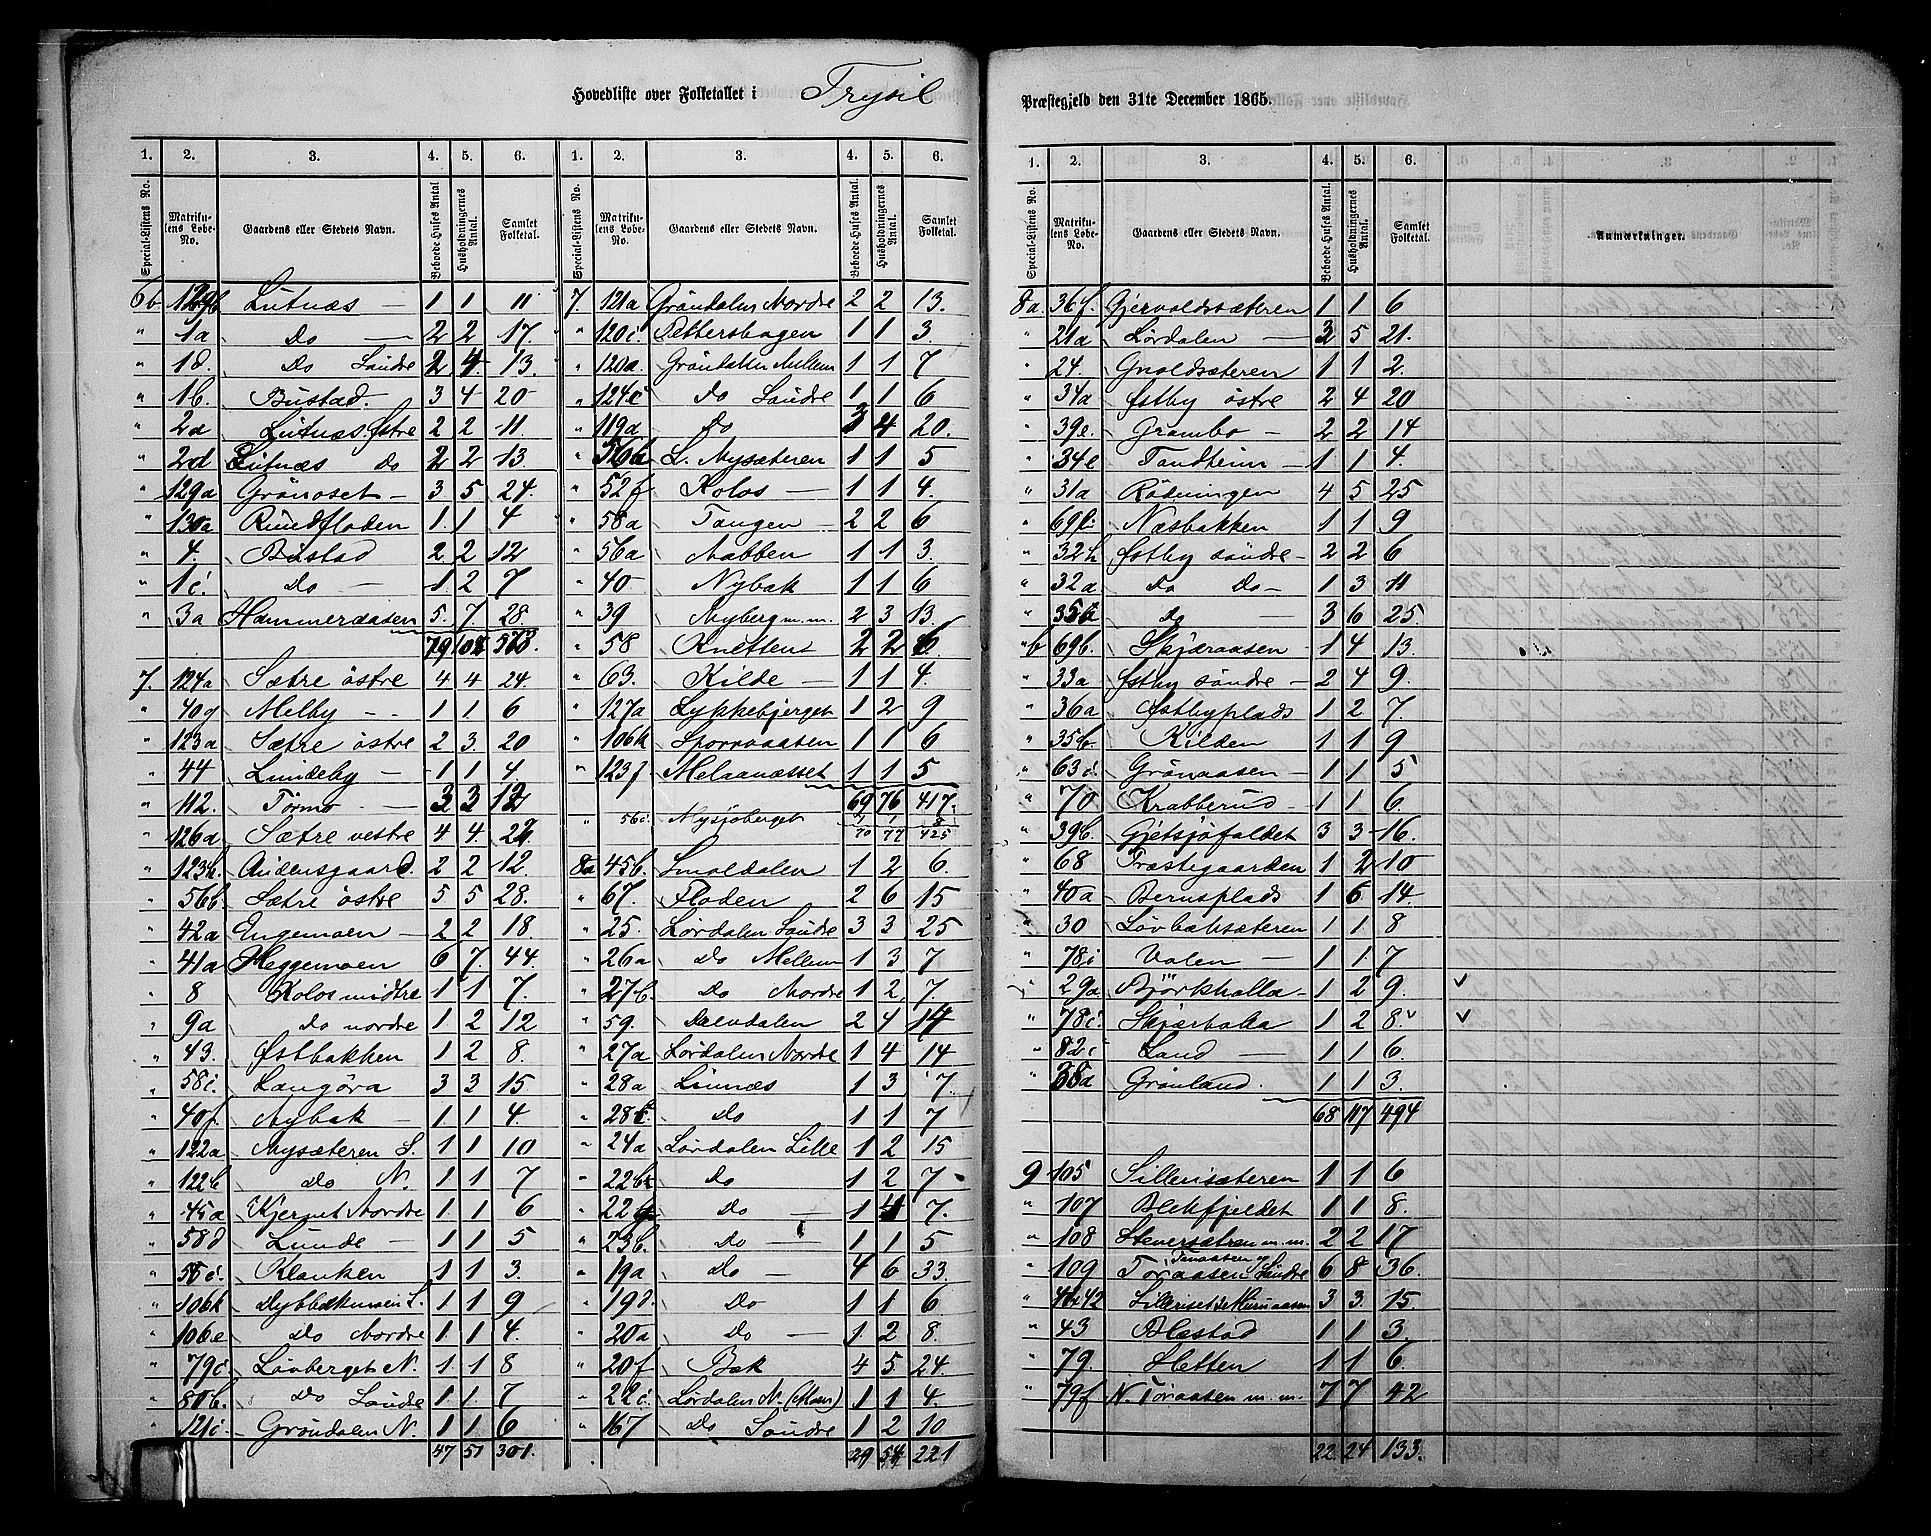 Hovedliste over Folketallet i Trysil
1. 2. 3. 4. 5. 6. 1. 2. 3. 4. 5. 6.
Special-Listens No. Matrikulens Lobe-No. Gaardens eller Stedets Navn. Beboede Huses Antal Husholdningernes Antal. Samlet Folketal. Special-Listens No. Matrikulens Lobe-No. Gaardens eller Stedets Navn. Beboede Huses Antal. Husholdningernes Antal. Samlet Folketal.
6b. Lutnæs — 1 1 11
" 1a Do — 2 2 17.
" 1d. Do Søndre 2 4. 13.
" 1b. Bustad. 3 4 20
" 2a Lutnæs Østre 2 2 11
" 2d Lutnæs Do 2 2 13.
" 129a Grönoset — 3 5 24.
" 130a Rundfloden 1. 1 4
" 4. Bustad 2 2 12
" 1c. Do — 1. 2 7
" 3a Hammeraasen 5. 7 28.
79
7. 124a Sætre östre 4 4 24.
" 40g Melby — 1 1 6
" 123a Sætre östre 2 3. 20
" 44 Lundeby — 1 1 4
" 112. Tørmo — 3 3 12
" 126a Sætre vestre 4 4.
" 123b. Audensgaard. 2 2 12.
" 56b Sætre östre 5 5 28.
" 42a Engemoen — 2 2 18.
" 41a Heggemoen 6 7 44
" 8 Kolos midtre 1 1 7.
" 9a Do nordre 1. 2 12
" 43. Østbakken 1 2 8.
" 58c. Langöra 3 3 15
" 40f Nybak — 1. 1 4.
" 122a Nysæteren S. 1 1 10
" 122b Do N. 1 1 7
" 45a Kjernet Nordre 1. 1 6
" 58d Lunde — 1 1 5
" 55c. Klanken 1 1 3.
" 106k Dybbækmoen S. 1 1 9
" 106e Do Nordre 1 1 4.
" 79c Lövberget N. 1. 1 8
" 80b. Do Søndre 1. 1. 7
" 121c Gröndalen N. 1 1 6
47 51 301.
7. 121a Gröndalen Nordre 2 2 13.
" 120c. Pettershagen 1 1 3.
" 120a Gröndalen Mellem 1 1 7
" 124c Do Søndre 1 1 6
" 119a Do 3 4 20.
" L. Nysæteren 1 1 5
" 52f Kolos — 1 1 4.
" 58a Tangen — 2 2 6
" 56a Nabben 1 1 3.
" 40 Nybak 1 1 6
" 39 Nyberg m. m. 2 3 13.
" 58 Knetten 2 2 6
" 63. Kilde — 1 1 4.
" 127a Lykkebjerget 1 2 9
" 106h Sporvaasen 1 1 6
" 123f Melaanæsset 1 1 5
69 76 417.
" 56c. Nysjöberget 1 1 8
70 77 425
8a 45b. Smoldalen 1 2 6.
" 67. Floden 2 6 15
" 25. Lørdalen Søndre 3 3 25
" 26a Do Mellem 1 3 7
" 27b. Do Nordre 1 2 7.
" 59. Dalvdalen 2 4 14
" 27a Lørdalen Nordre 1 4 14
" 28a Linnæs 1 3 7
" 28c. Do 1 1 7
" 24a Lørdalen Lille 1 2 15
" 22b Do 1 2 7
" 22g Do — 1 4 7.
" 23b. Do — 1 1 5
" 19a Do — 4 6 33.
" 19d. Do 1 1 6
" 20a Do — 1. 2 8.
" 20f Bæk 4 5. 24.
" 22c. Lørdalen N. (Moen) 1 1 4.
" 167 Do Søndre 1 2 10
29 54 221
Præstegjeld den 31te December 1865.
1. 2. 3. 4. 5. 6.
Special-Listens No. Matrikulens Lobe-No. Gaardens eller Stedets Navn. Beboede Huses Antal. Husholdningernes Antal. Samlet Folketal. Anmærkninger.
8a. 36f. Gjervoldssæteren 1 1 6
" 21a Lørdalen — 3 5 21.
" 24. Gnoldsæteren 1 1 2.
" 34a Østby östre 2 4 20
" 39e. Grambo — 2 2 14
" 34e Tandheim — 1 1 4.
" 31a Rödningen 4 5 25
" 69c Næsbakken 1 1 9
" 32h Østby söndre — 2 2 6
" 32a Do Do — 1 3 11
" Do — 3 6 25.
" b 69b. Skjæraasen 1 4 13.
" 33a Østby söndre — 2 4 9.
" 36a Østbyplads 1 2 7.
" 35b. Kilden 1 1 9
" 63c. Grönaasen — 1 1 5
" 70 Krabberud — 1 1 6.
" 39b. Gjetsjöfaldet 3 3 16.
" 68 Træstegaarden 1 2 10
" 40a Bernsplads 1 6 14
" 30 Lövbaksæteren 1 1 8
" 78i Volen — 1 1 7
" 29a Björkholla — 1 2 9.
" 78c. Skjærholla 1 2 8.
" 82c Land — 1 1 6.
" 38a Grönland. 1 1 3.
68 117 494
9 105 Lillerisæteren 1 1 6
" 107 Blekfjeldet 1 1 8.
" 108 Stenersætren m. m. 2 2 17
" 109 Toraasen Søndre 6 8 36.
" 41&42 Lilleriset & Muruaasen 3 3. 15.
" 43 Blæstad 1 1 3.
" 79. Hetten 1 1 6.
" 79f N. Toraasen m. m. 7 7 42
22 24 133.